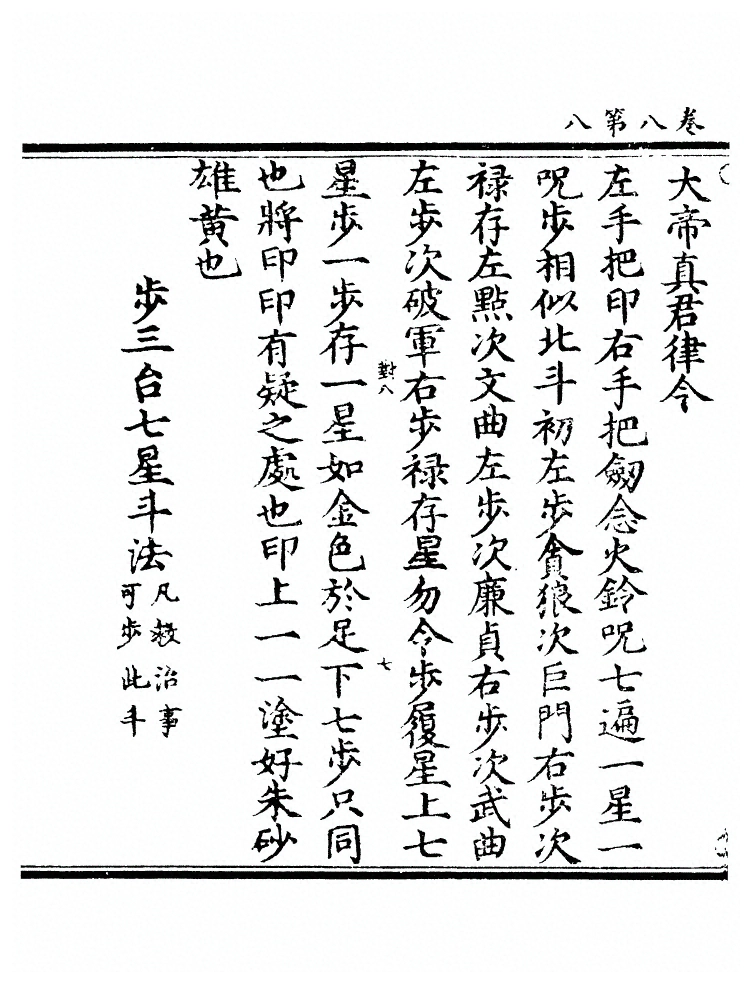 卷八第八
大帝真君律令
左手把印右手把劒念火鈴呪七遍一星一
呪步相似北斗初左步貪狼次巨門右步次
禄存左點次文曲左步次廉貞右步次武曲
左步次破軍右步禄存星勿令步履星上七
對八
七
星步一步存一星如金色於足下七步只同
也將印印有疑之處也印上一一塗好朱砂
雄黃也
步三台七星斗法
凡救治事
可步此斗